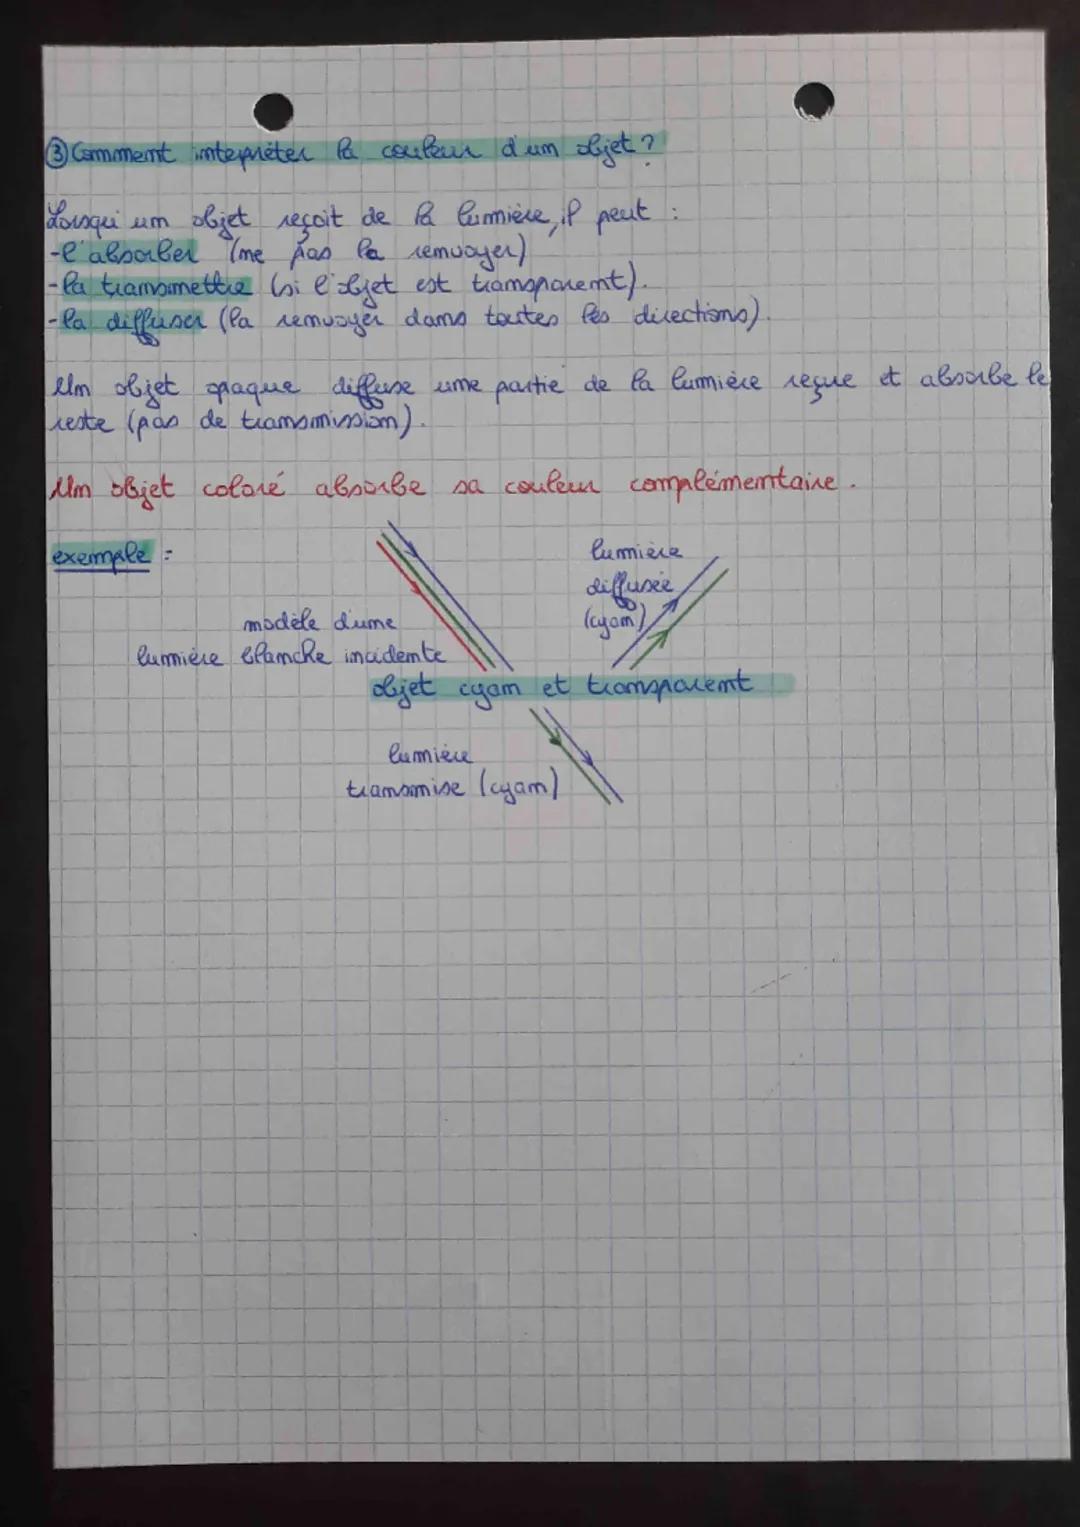 ③ Comment interpréter la couleur d'un objet ?
Lorsqu'un objet reçoit de la lumière, il peut :
- l'absorber (ne pas la renvoyer)
- la transmettre (si l'objet est transparent).
- la diffuser (la renvoyer dans toutes les directions).
Un objet opaque diffuse une partie de la lumière reçue et absorbe le
reste (pas de transmission).
Un objet coloré absorbe sa couleur complémentaire.
exemple :
lumière
diffusée
(cyan)
modèle d'une
lumière blanche incidente
objet cyan et transparent
lumière
transmise (cyan)